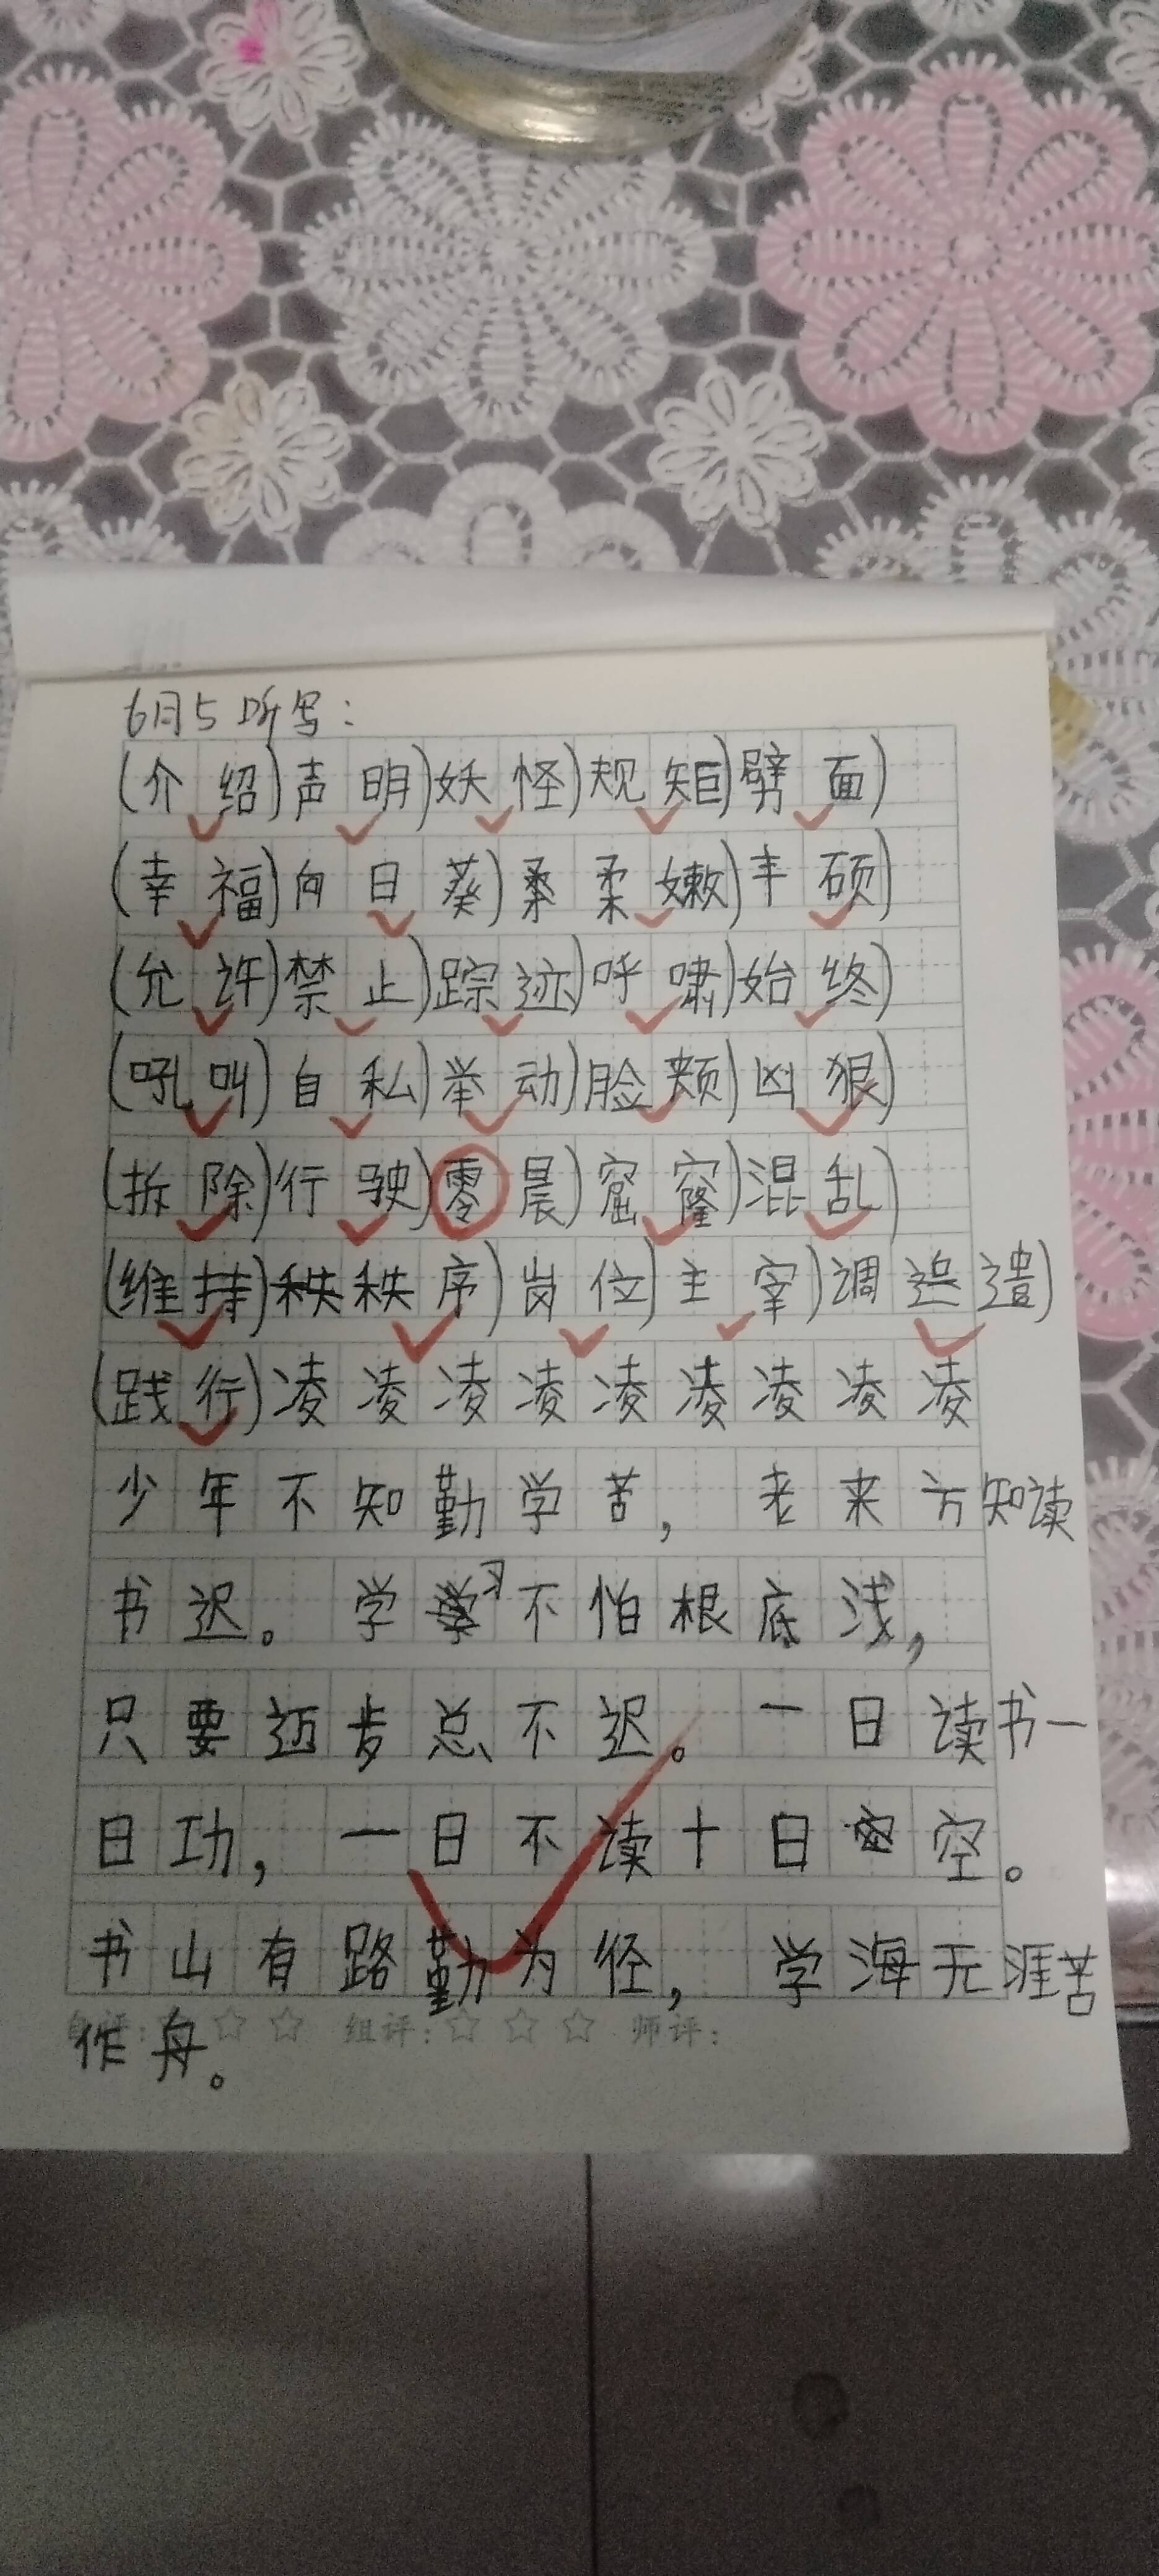 6月5听写：
(介绍)声明)妖怪)规矩)劈面)
(幸福)向日葵)柔嫩)丰硕)
(允许)禁止)踪迹)呼啸)始终)
(吼叫)自私)举动)脸颊)凶狠)
(拆除)行驶)零晨)窟窿)混乱)
(维持)秩秩序)岗位)主宰)调遣)
(践行)凌凌凌凌凌凌凌凌凌
少年不知勤学苦，老来方知读
书迟。学习不怕根底浅，
只要迈步总不迟。一日读书一
日功，一日不读十日空。
书山有路勤为径，学海无涯苦
自评：☆☆ 组评：☆☆☆ 师评：
作舟。